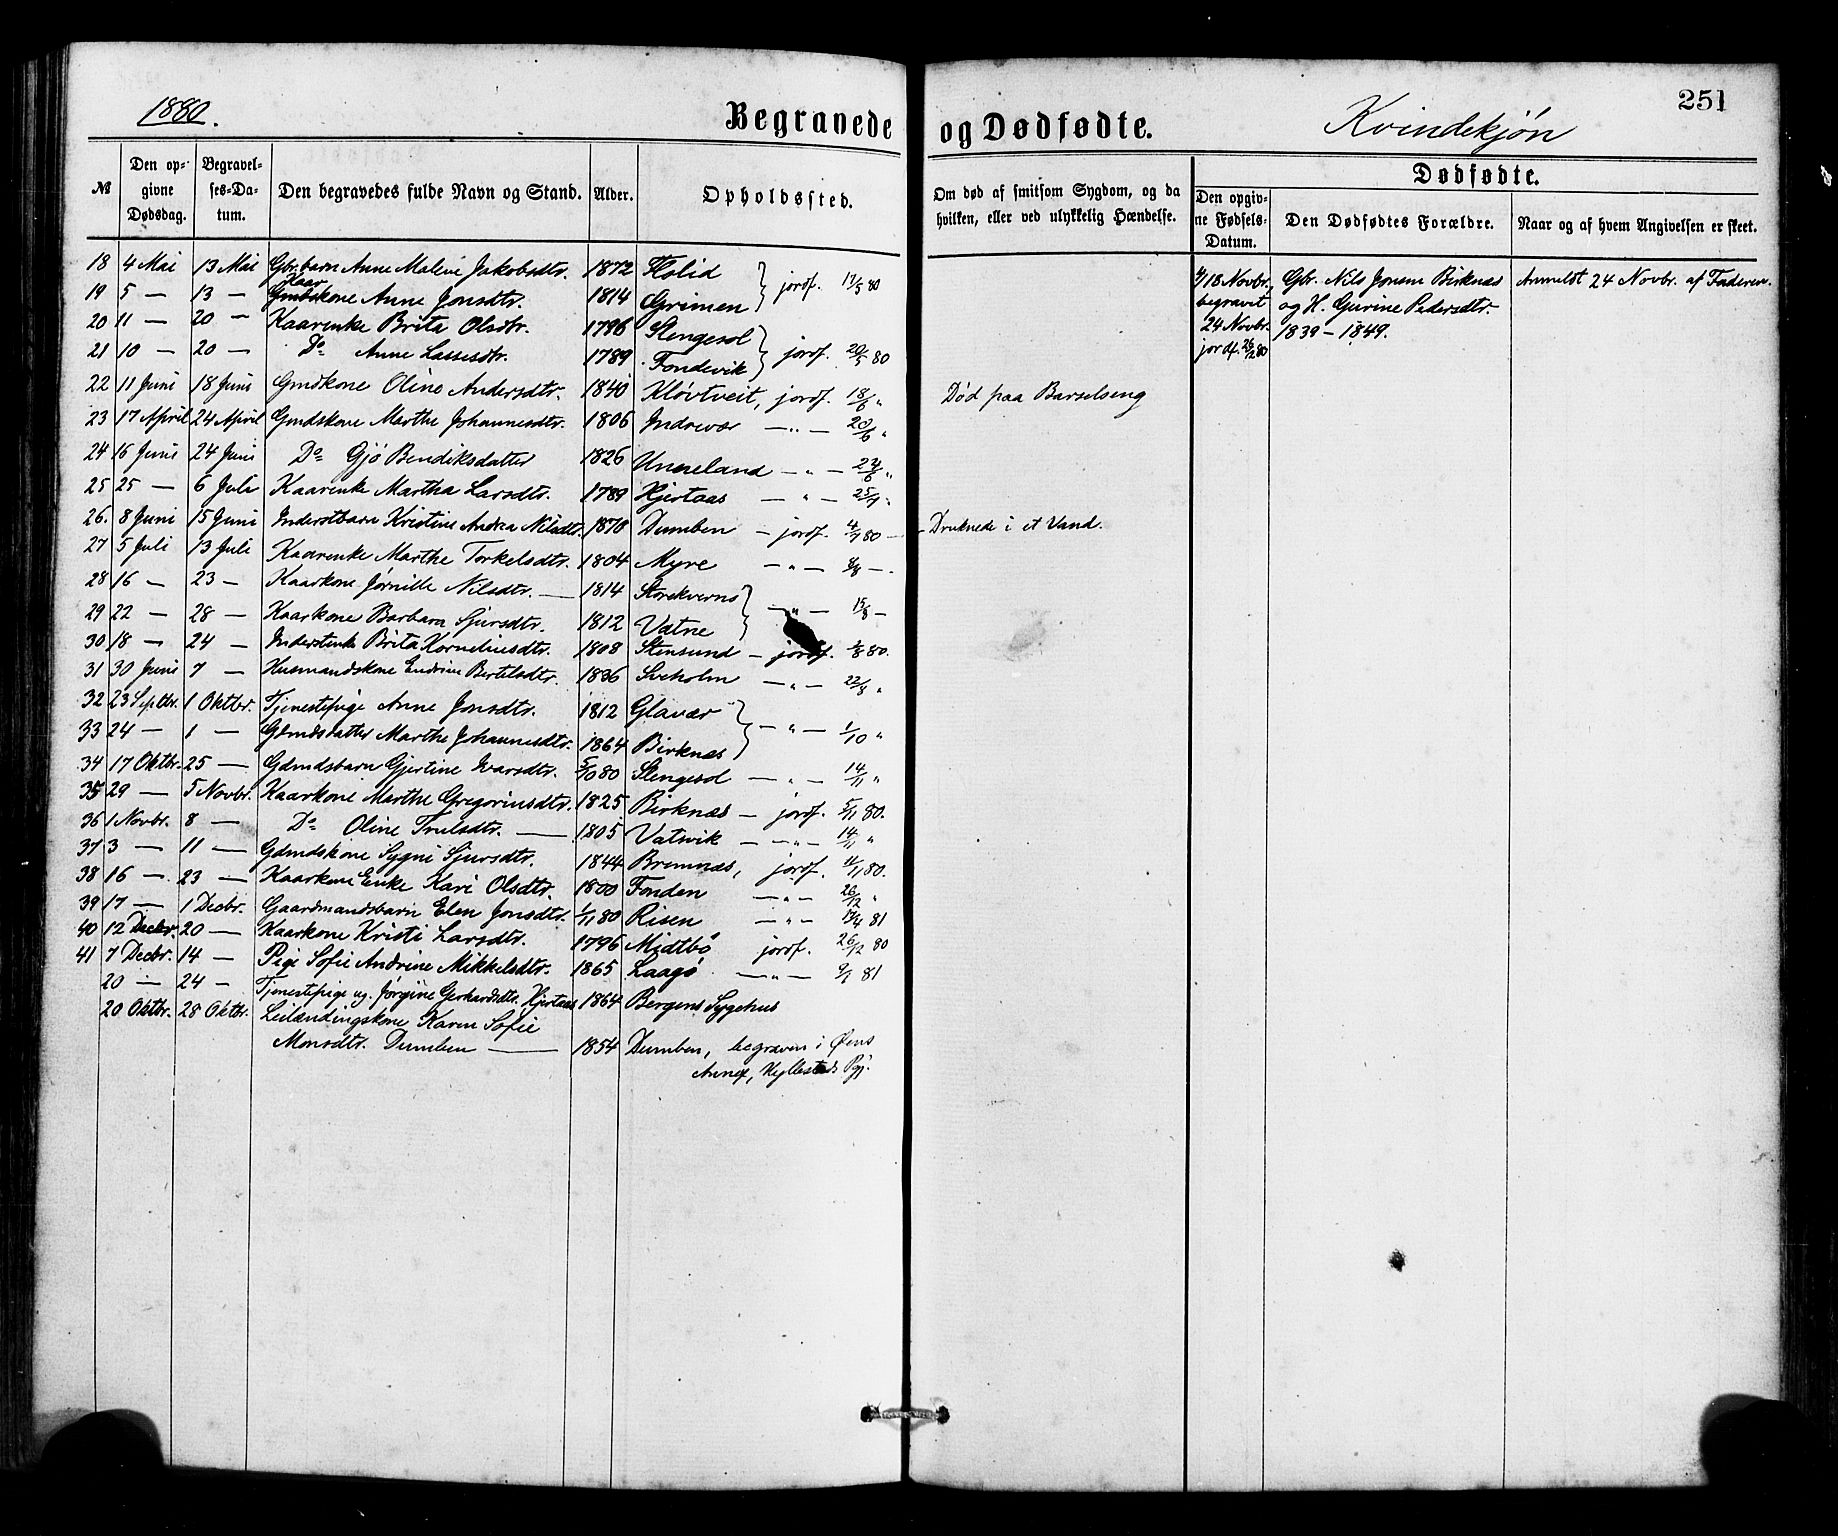 1880.
Begravede og Dødfødte.
Kvindekjøn
251
№
Den opgivne Dødsdag.
Begravelses-Datum.
Den begravedes fulde Navn og Stand.
Alder.
Opholdssted.
Om død af smitsom Sygdom, og da hvilken, eller ved ulykkelig Hændelse.
Dødfødte.
Den opgivne Fødsels-Datum.
Den Dødfødtes Forældre.
Naar og af hvem Angivelsen er skeet.
18 4 Mai 13 Mai Gbr.barn Anne Malene Jakobsdtr. 1872 Flolid } jordf. 17/5 80
Kaar
19 5 — 13 — Gmdskone Anne Jonsdtr. 1814 Grimen
20 11 — 20 — Kaarenke Brita Olsdtr. 1796 Stengesol
21 10 — 20 — Do Anne Lassesdtr. 1789 Fondevik } jordf. 20/5 80
22 11 Juni 18 Juni Gmdkone Oline Andersdtr. 1840 Kløvtveit, jordf. 18/6 " Død paa Barselseng
23 17 April 24 April Gmdskone Marthe Johannesdtr. 1806 Indrevær — " — 20/6 "
24 16 Juni 24 Juni Do Gjø Bendiksdatter 1826 Unneland — " — 24/6 "
25 25 — 6 Juli Kaarenke Martha Larsdtr. 1789 Hjertaas — " — 25/7 "
26. 8 Juni 15 Juni Inderstbarn Kristine Andrea Nilsdtr. 1878 Dumben — jordf. 4/7 80 — Druknede i et Vand.
27 5 Juli 13 Juli Kaarenke Marthe Torkelsdtr. 1804 Myre — " — 8/8 —.
28 16 — 23 — Kaarkone Jørnille Nilsdtr. — 1814 Storekverns
29 22 — 28 — Kaarkone Barbara Sjursdtr. 1812 Vatne } — " — 15/8 —
30 18 — 24 — Inderstenke Brita Korneliusdtr. 1808 Stensund — jordf. 80.
31 30 Juni 7 — Husmandskone Endrine Bertilsdtr. 1836 Sveholm — " — 22/8 "
32 23 Septbr. 1 Oktbr. Tjenestepige Anne Jonsdtr. 1812 Glavær
33 24 — 1 — Gdmdsdatter Marthe Johannesdtr. 1864 Birknæs } — " — 1/10 "
34 17 Oktbr. 25 — Gdmdsbarn Gjertine Ivarsdtr. 5/10 80 Stengesol — " — 14/11 "
35 29 — 5 Novbr. Kaarkone Marthe Gregoriusdtr. 1825 Birknæs — jordf. 5/11 80.
36 1 Novbr. 8 — Do Oline Trulsdtr. — 1805 Vatsvik — " — 14/11 "
37 3 — 11 — Gdmdskone Sygni Sjursdtr. 1844 Bremnæs, jordf. 11/11 80.
38 16 — 23 — Kaarkone Enke Kari Olsdtr. 1800 Fonden — " — 26/12 "
39 17 — 1 Decbr. Gaardmandsbarn Elen Jonsdtr. 1/11 80 Risen — " — 17/4 81
40 12 Decbr. 20 — Kaarkone Kristi Larsdtr. 1796 Midtbø jordf. 26/12 80
41 7 Decbr. 14 — Pige Sofie Andrine Mikkelsdtr. 1865 Laagø — " — 81
20 — 24 — Tjenestepige ug. Jørgine Gerhardsdtr. Hjertaas 1864 Bergens Sygehus
20 Oktbr. 28 Oktbr. Leilændingskone Karen Sofie
Monsdtr. Dumben — 1854 Dumben, begraven i Øens
Annex, Hyllestads Pgj.
18 Novbr. Gbr. Nils Jonsen Birknæs Anmeldt 24 Novbr. af Faderen.
begravet og H. Gurine Pedersdtr.
24 Novbr. 1839 – 1849.
jordf. 26/12 80